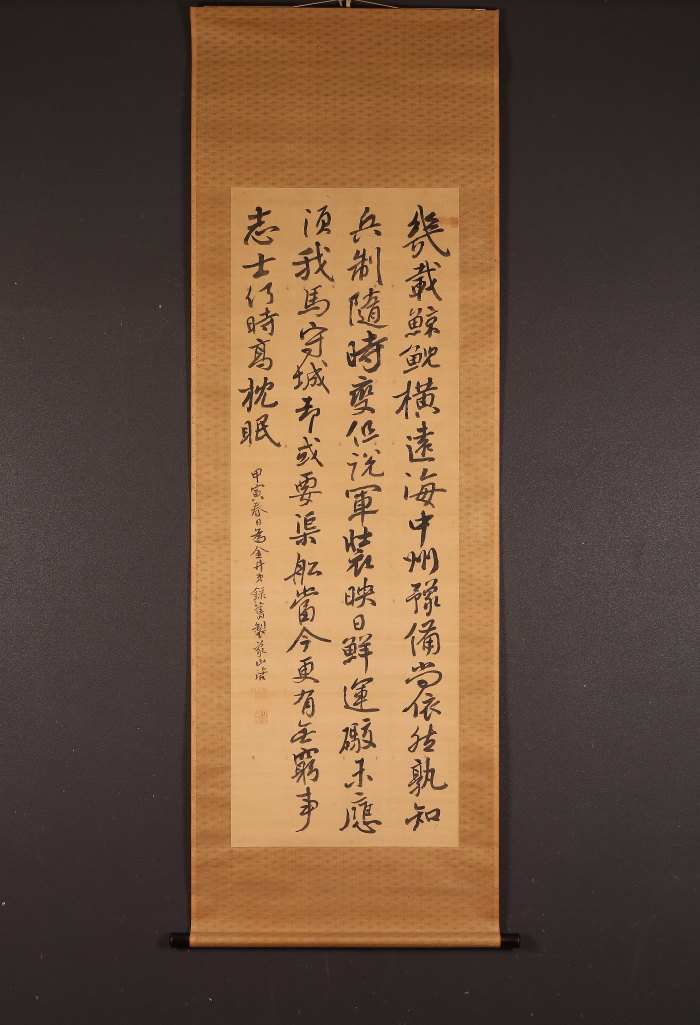 幾載鯨鯢橫遠海中州豫備尚依然孰知
兵制隨時變但說軍裝映日鮮運礮未應
須我馬守城却或要渠船當今更有無窮事
志士何時高枕眠
甲寅春日為金井錄舊製